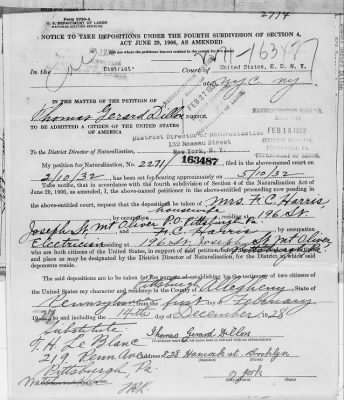 2774
Form 2390-A
U. S. DEPARTMENT OF LABOR
NATURALIZATION SERVICE
NOTICE TO TAKE DEPOSITIONS UNDER THE FOURTH SUBDIVISION OF SECTION 4,
ACT JUNE 29, 1906, AS AMENDED
163477
In the District Court of United States, E. D. N. Y.
at N.Y.C. N.Y.
IN THE MATTER OF THE PETITION OF
Thomas Gerard Dillon
NOTICE.
TO BE ADMITTED A CITIZEN OF THE UNITED STATES
OF AMERICA
FEB 16 1932
District Director of Naturalization
132 Nassau Street
New York, N. Y.
To the District Director of Naturalization,
My petition for Naturalization, No. 2271 163487, filed in the above-named court on
2/10/32, has been set for hearing approximately on 5/10/32
Take notice, that in accordance with the fourth subdivision of section 4 of the Naturalization Act of
June 29, 1906, as amended, I, the above-named petitioner in the proceeding now pending in the
above-entitled court, request that the deposition be taken of Mrs. F. C. Harris
by occupation housewife, residing at 196 St.
Joseph St Mt Oliver P.O. Pittsburgh
and F. C. Harris
by occupation
Electrician, residing at 196 St. Joseph St Mt Oliver
who are both citizens of the United States, in support of said petition
and place as may be designated by the District Director of Naturalization, for the district in which said
deponents reside.
The said depositions are to be taken for the purpose of establishing by the testimony of two citizens of the
United States my character and residence in the County of Allegheny, State of
Pennsylvania from the first day of February
to and including the 14th day of December 1928
Substitute
T. H. Le Blanc
219 Penn Ave
Pittsburgh Pa.
Thomas Gerard Dillon
828 Brooklyn